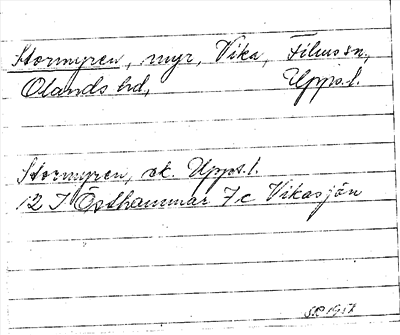 Stormyren, myr, Vika, Films sn,
Olands hd, Upps.l.
Stormyren, sk. Upps.l.
12 I Östhammar 7c Vikasjön
1957